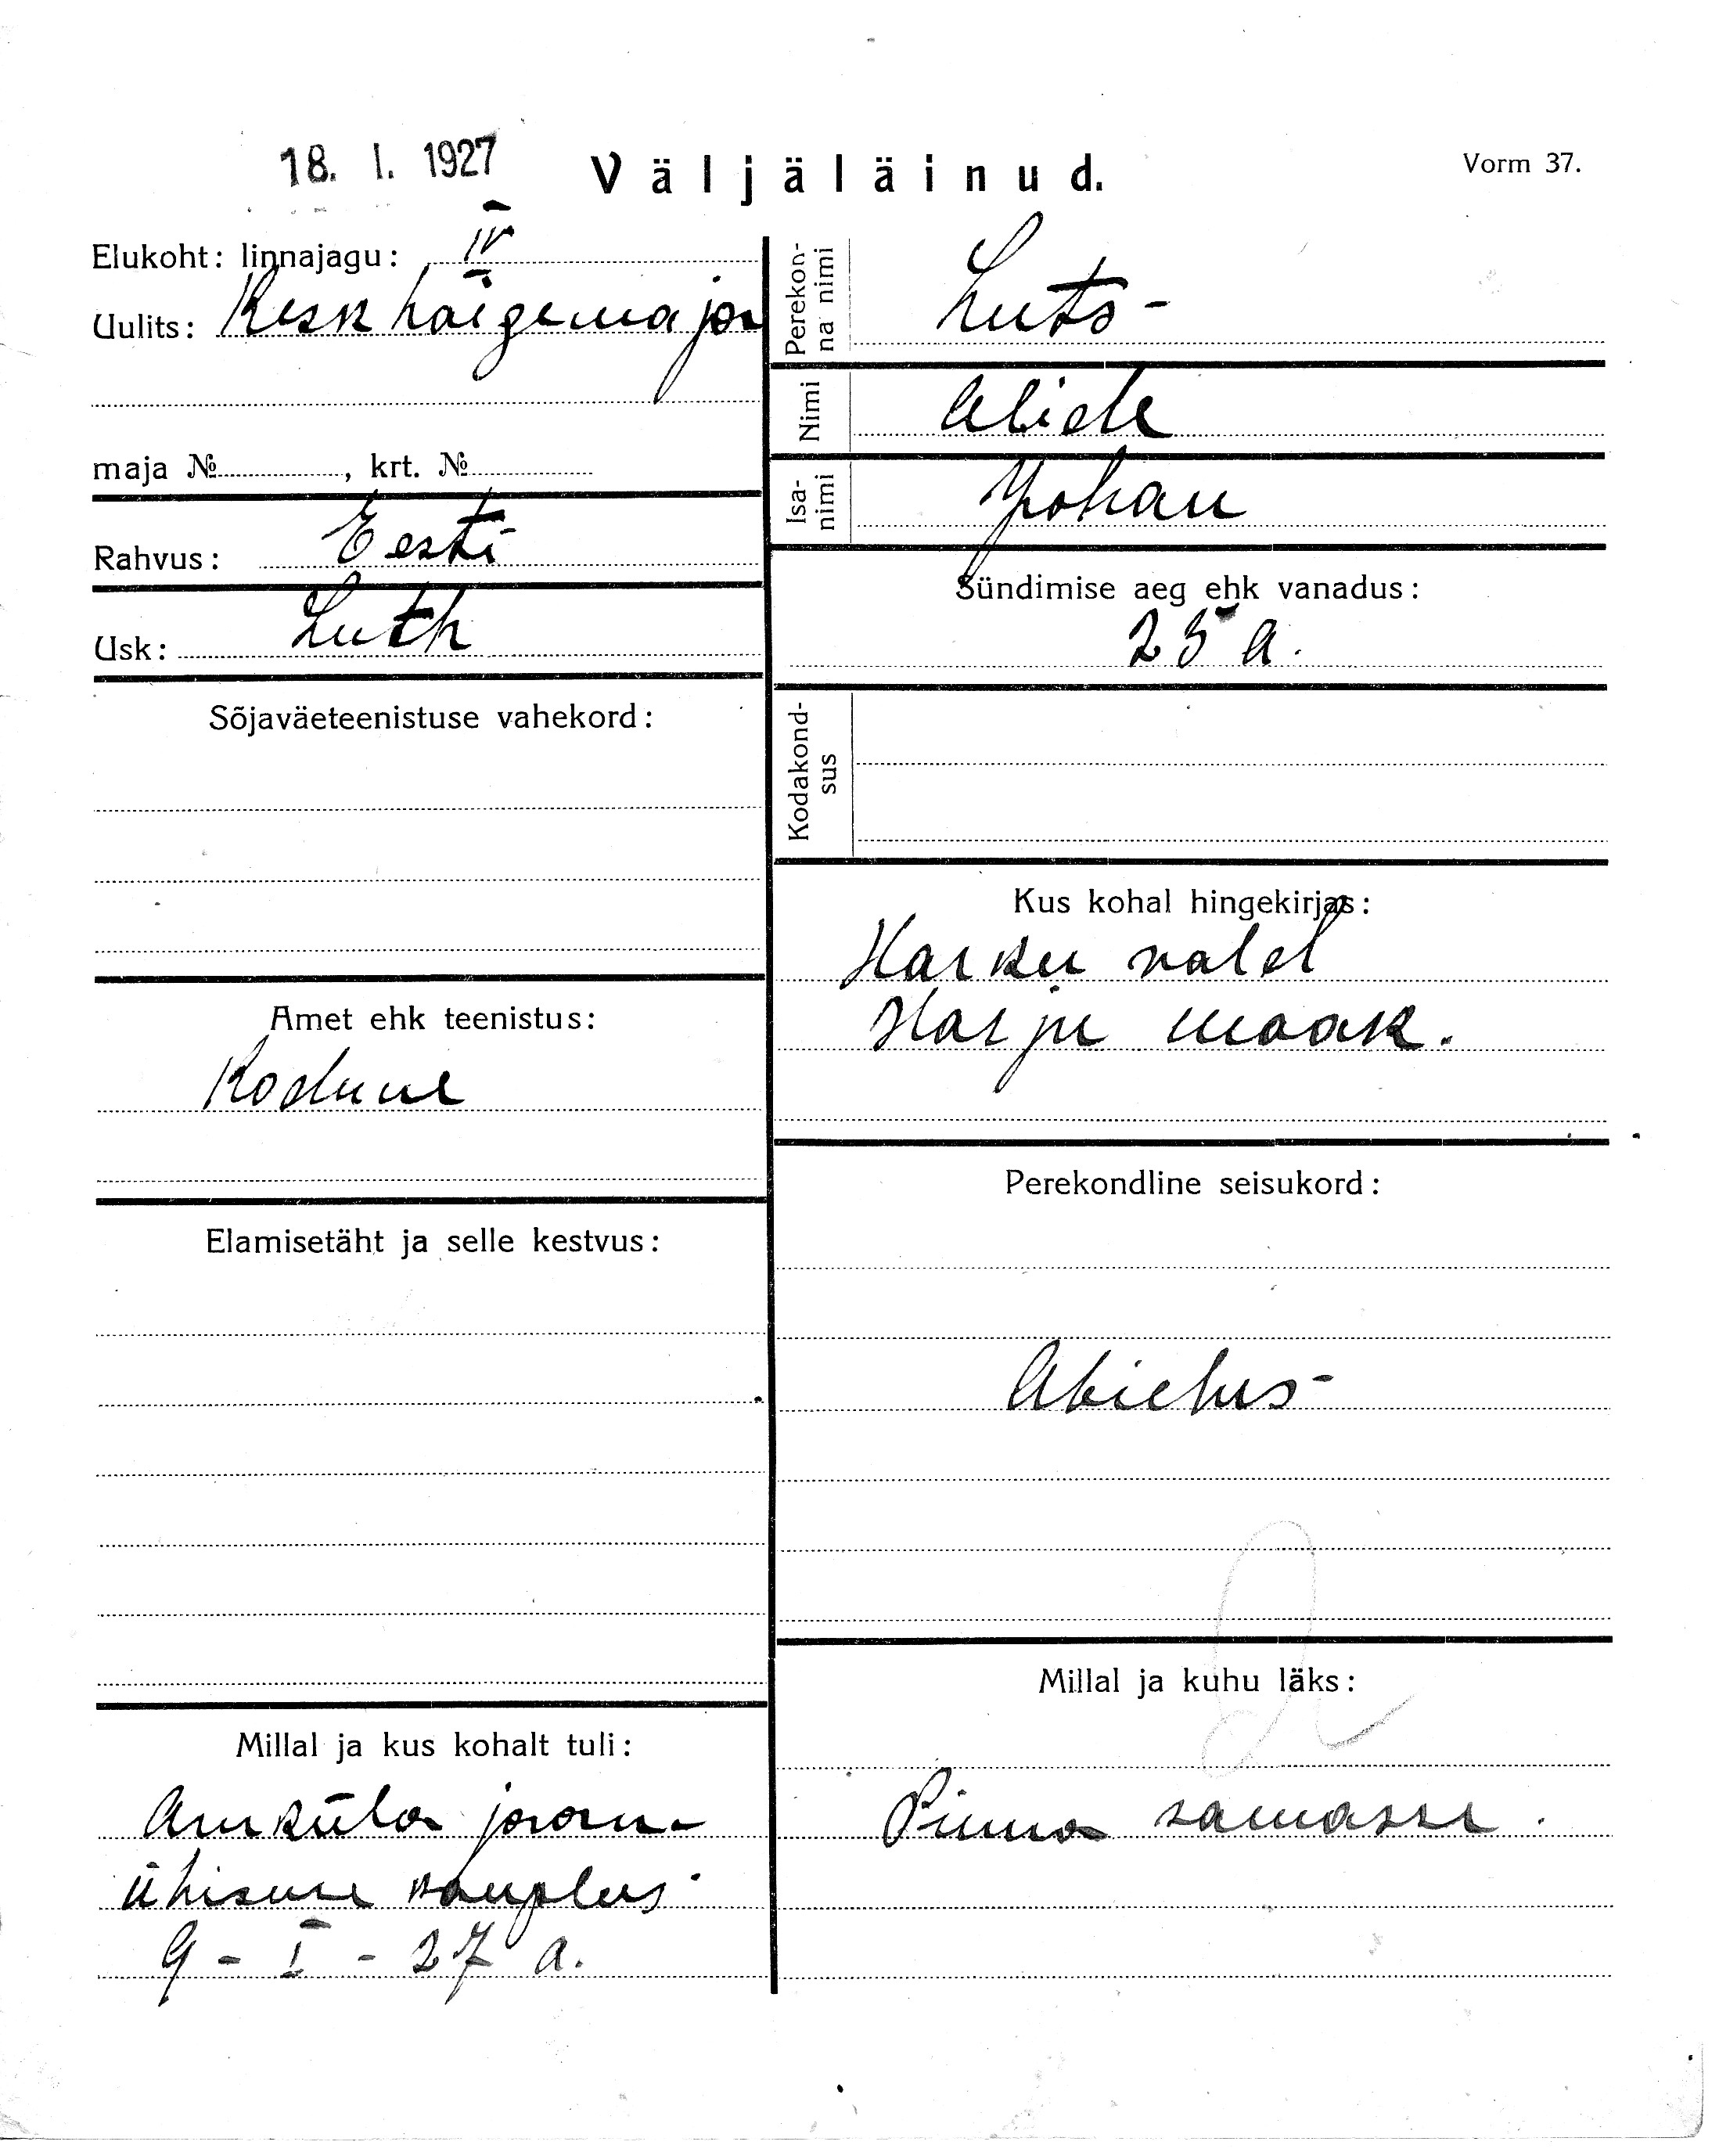 18. I. 1927
Väljäläinud.
Vorm 37.
Elukoht: linnajagu: IV
Uulits: Kesk haigemaja
maja № , krt. №
Rahvus: Eesti
Usk: Luth
Sõjaväeteenistuse vahekord:
Amet ehk teenistus:
Kodune
Elamisetäht ja selle kestvus:
Millal ja kus kohalt tuli:
jaam
ühisuse kauplus
9 - I - 27 a.
Perekonna nimi
Luts
Nimi
Alide
Isanimi
Johan
Sündimise aeg ehk vanadus:
25 a.
Kodakondsus
Kus kohal hingekirjas:
Harku vald
Harju maak.
Perekondline seisukord:
Abielus
Millal ja kuhu läks:
Sinna samasse.